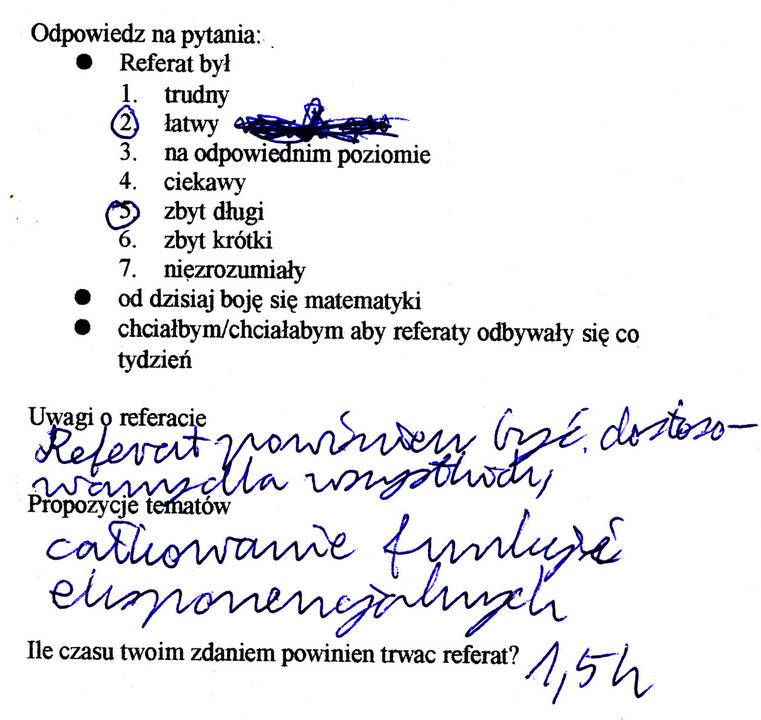 Odpowiedz na pytania:
● Referat był
1. trudny
2. łatwy
3. na odpowiednim poziomie
4. ciekawy
5. zbyt długi
6. zbyt krótki
7. niezrozumiały
● od dzisiaj boję się matematyki
● chciałbym/chciałabym aby referaty odbywały się co
tydzień
Uwagi o referacie
Referat powinien być dostoso-
wany dla wszystkich,
Propozycje tematów
całkowanie funkcji
eksponencjalnych
Ile czasu twoim zdaniem powinien trwac referat? 1,5h